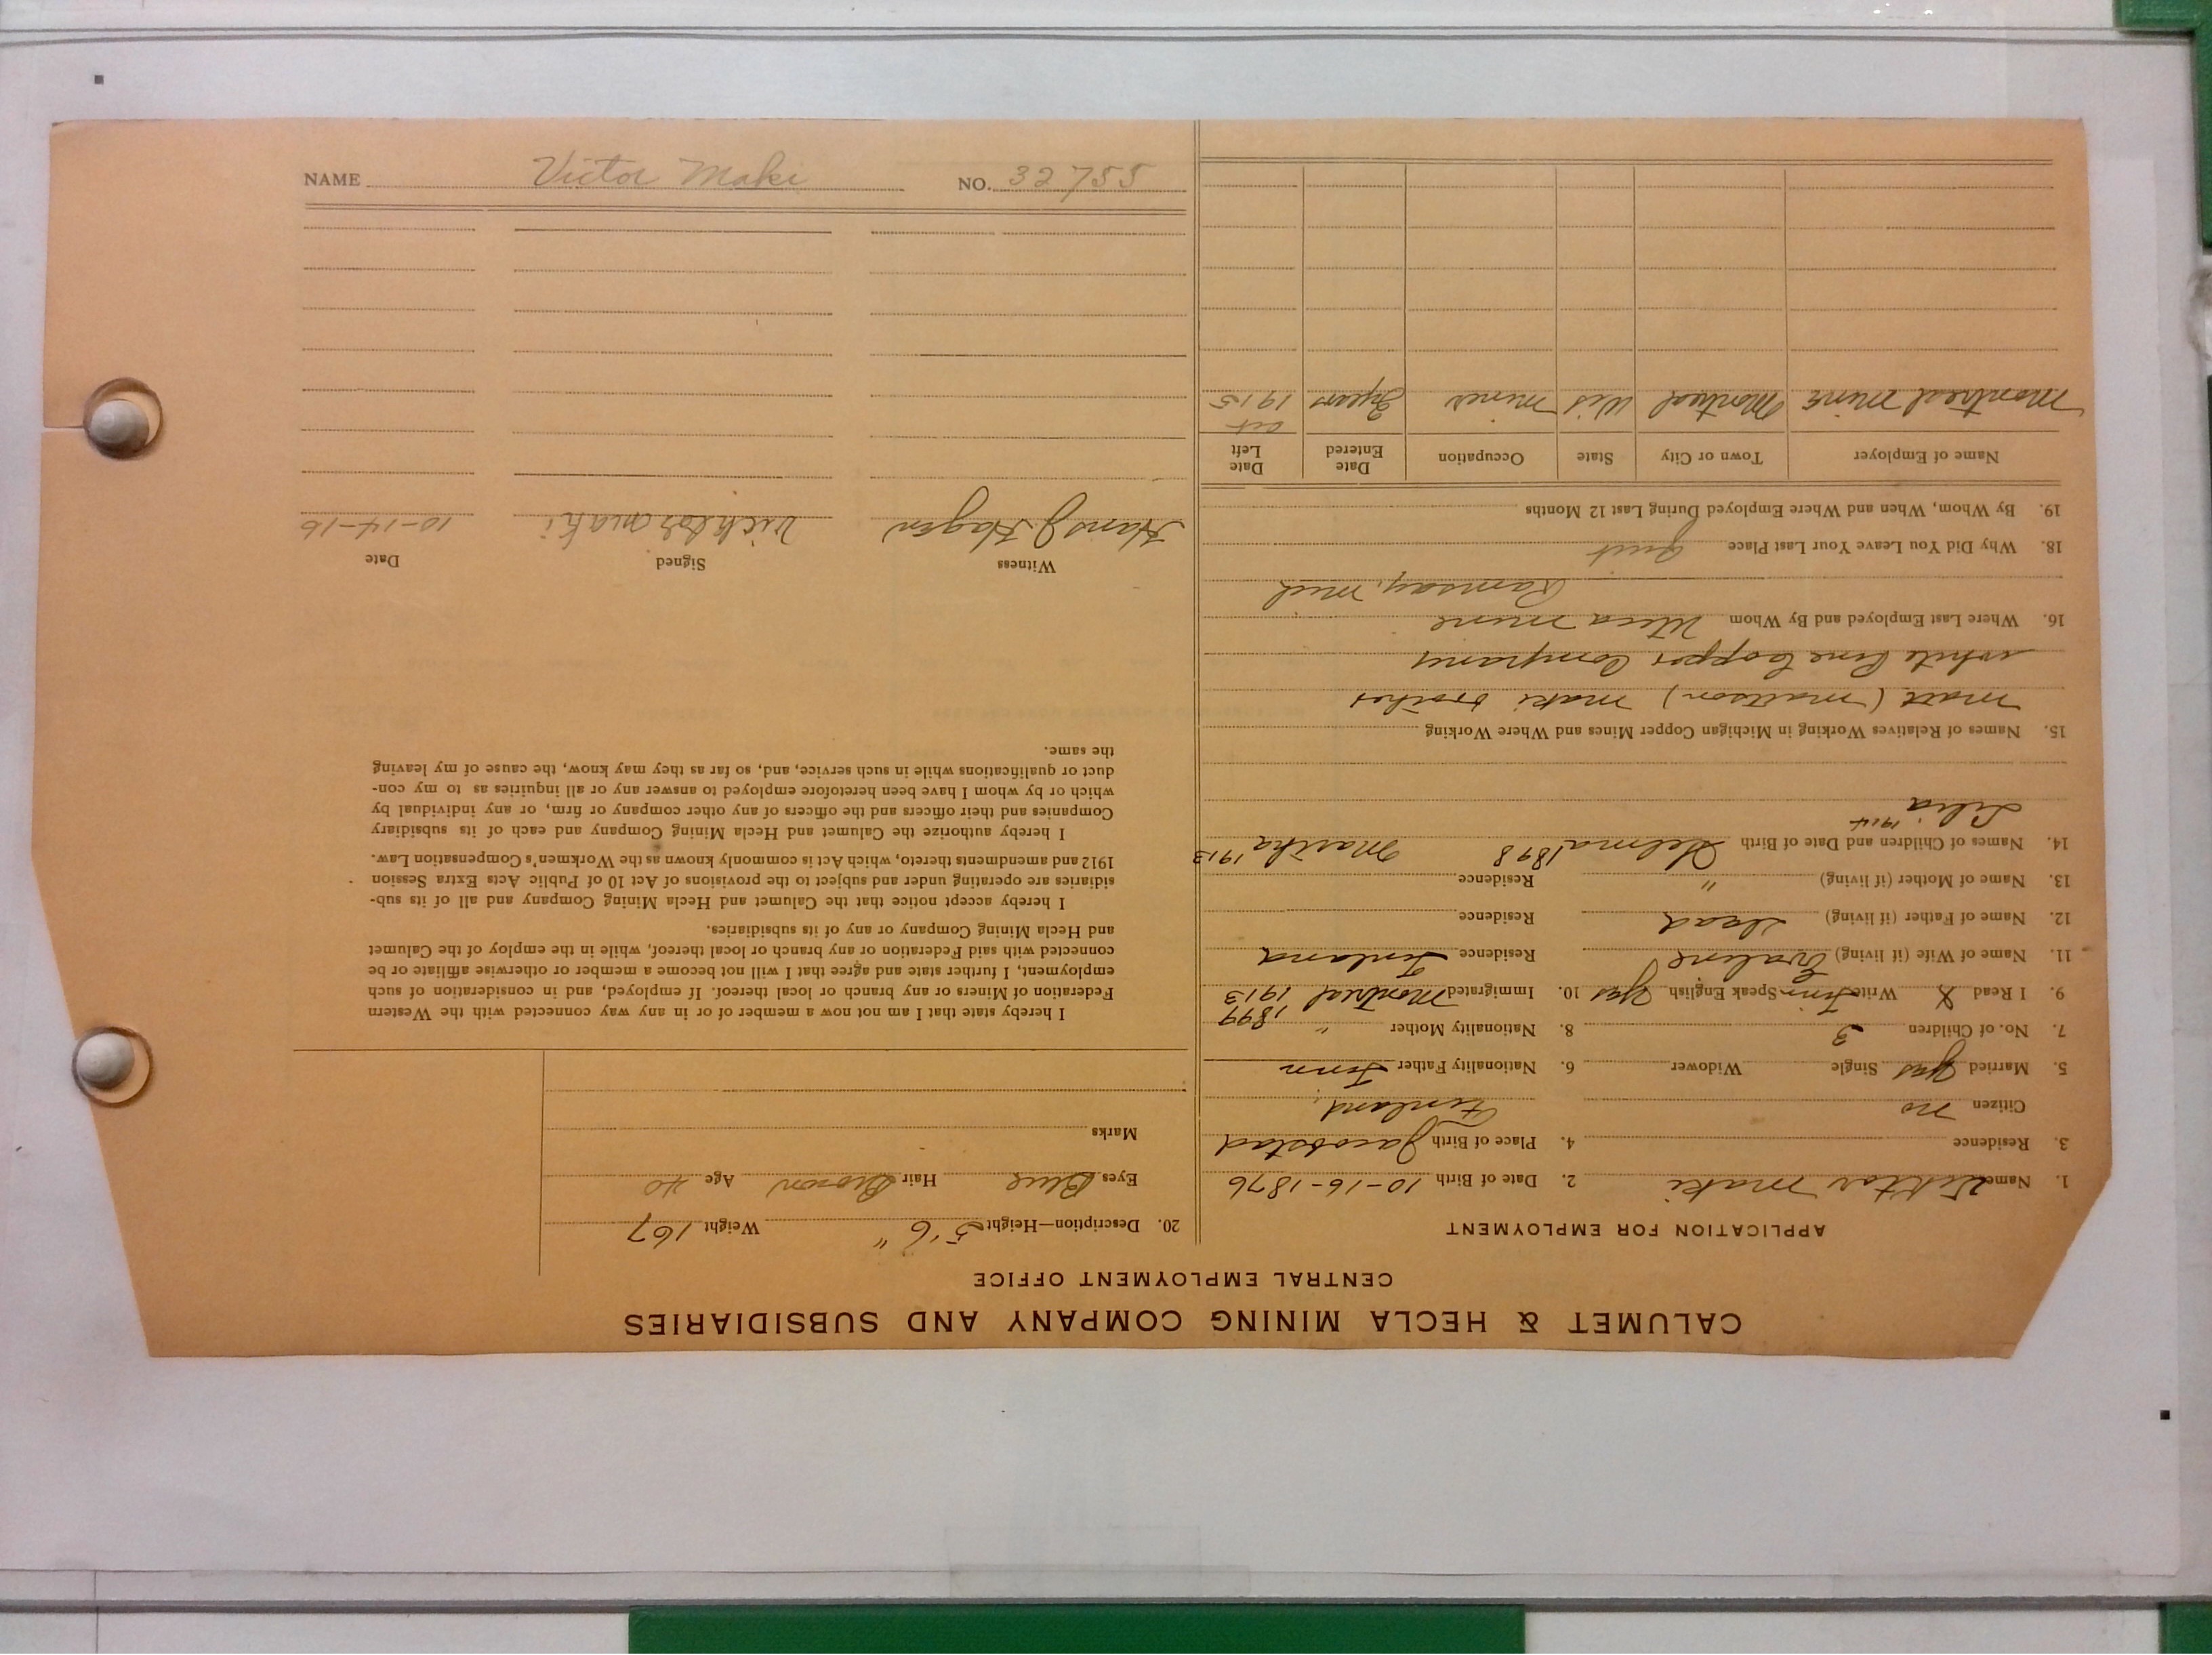 CALUMET & HECLA MINING COMPANY AND SUBSIDIARIES
CENTRAL EMPLOYMENT OFFICE
APPLICATION FOR EMPLOYMENT
1. Name Viktor Maki 2. Date of Birth 10-16-1876
3. Residence 4. Place of Birth Jacobstad
Citizen no Finland
5. Married yes Single Widower 6. Nationality Father Finn
7. No. of Children 3 8. Nationality Mother "
1899
9. I Read X Write Finn Speak English yes 10. Immigrated Montreal 1913
11. Name of Wife (if living) Evaline Residence Finland
12. Name of Father (if living) dead Residence
13. Name of Mother (if living) " Residence
14. Names of Children and Date of Birth Helma 1898 Martha 1913
1914
15. Names of Relatives Working in Michigan Copper Mines and Where Working
Matt (Mattson) Maki brother
White Pine Copper Company
16. Where Last Employed and By Whom Utica mine
Ramsay, Mich
18. Why Did You Leave Your Last Place quit
19. By Whom, When and Where Employed During Last 12 Months
Name of Employer Town or City State Occupation Date Entered Date Left
Montreal Mine Montreal Wis miner 3 years Oct 1915
20. Description—Height 5'6" Weight 167
Eyes Blue Hair Brown Age 40
Marks
I hereby state that I am not now a member of or in any way connected with the Western
Federation of Miners or any branch or local thereof. If employed, and in consideration of such
employment, I further state and agree that I will not become a member or otherwise affiliate or be
connected with said Federation or any branch or local thereof, while in the employ of the Calumet
and Hecla Mining Company or any of its subsidiaries.
I hereby accept notice that the Calumet and Hecla Mining Company and all of its sub-
sidiaries are operating under and subject to the provisions of Act 10 of Public Acts Extra Session
1912 and amendments thereto, which Act is commonly known as the Workmen's Compensation Law.
I hereby authorize the Calumet and Hecla Mining Company and each of its subsidiary
Companies and their officers and the officers of any other company or firm, or any individual by
which or by whom I have been heretofore employed to answer any or all inquiries as to my con-
duct or qualifications while in such service, and, so far as they may know, the cause of my leaving
the same.
Witness Signed Date
Hans J. Hagen Vicktor Maki 10-14-16
NAME Victor Maki NO. 32755